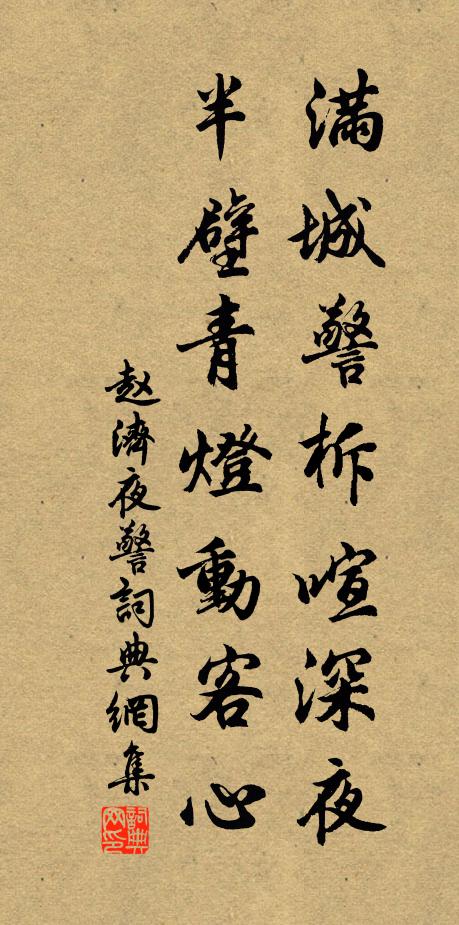 滿城警柝喧深夜
半壁青燈動客心
赵濟夜警詞典網集
詞典网印